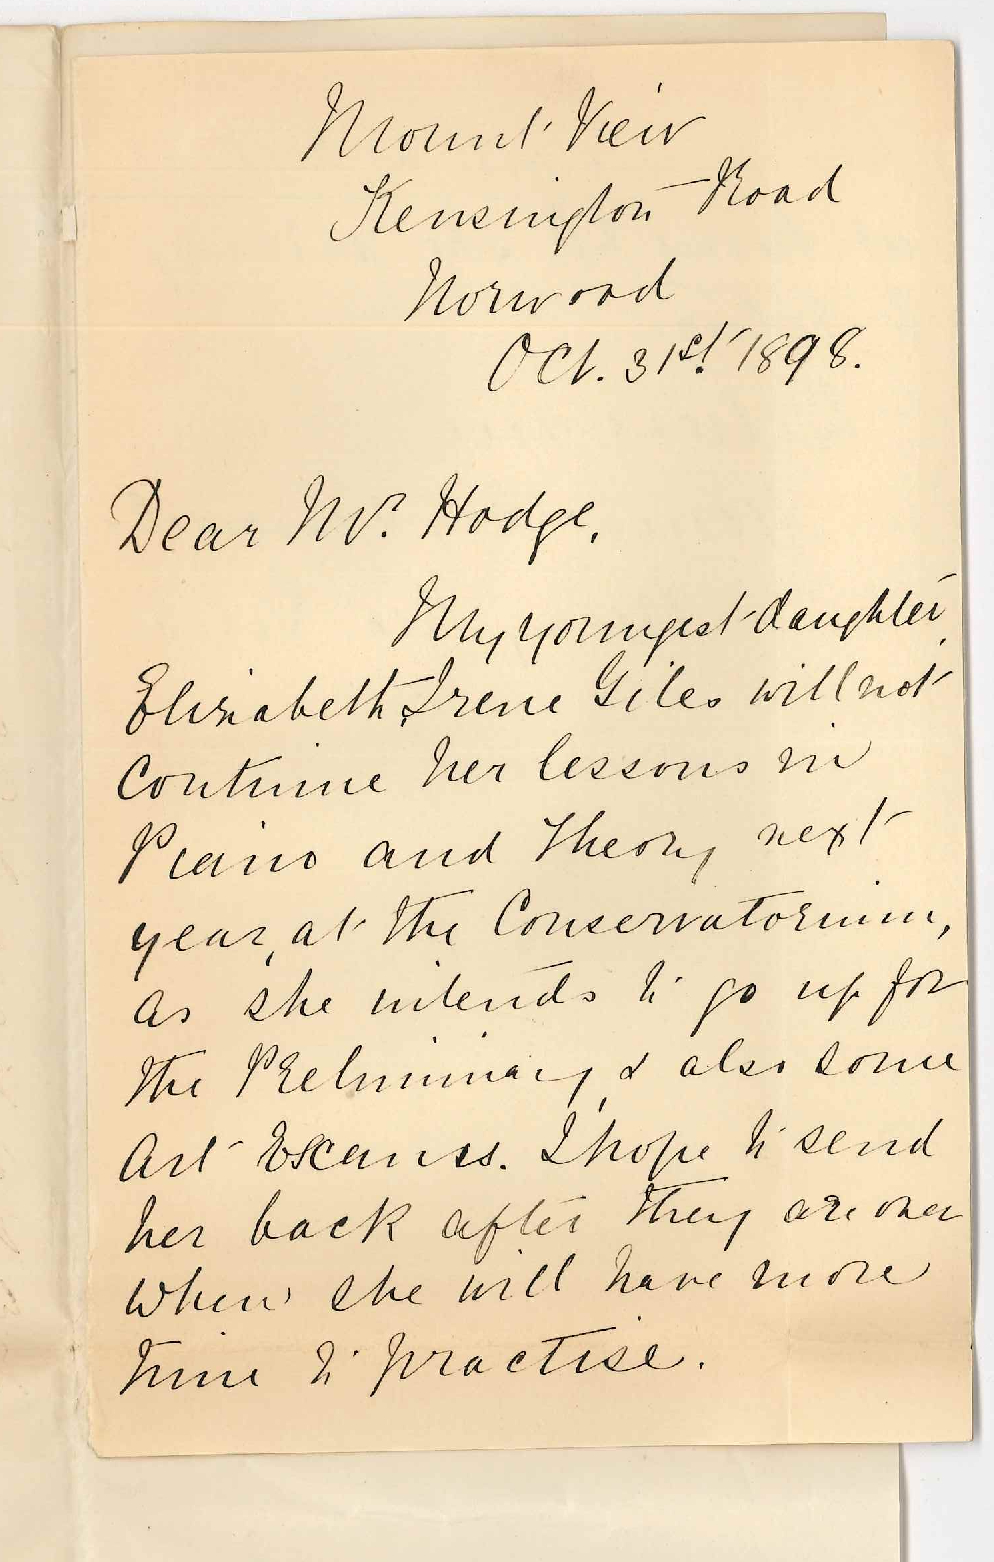 Mount View
Kensington Road
Norwood
Oct. 31st 1898.
Dear Mr. Hodge,
My youngest daughter,
Elizabeth Irene Giles will not
continue her lessons in
Piano and Theory next
year, at the Conservatorium,
as she intends to go up for
the Preliminary, & also some
Art Exams. I hope to send
her back after they are over
when she will have more
time to practise.